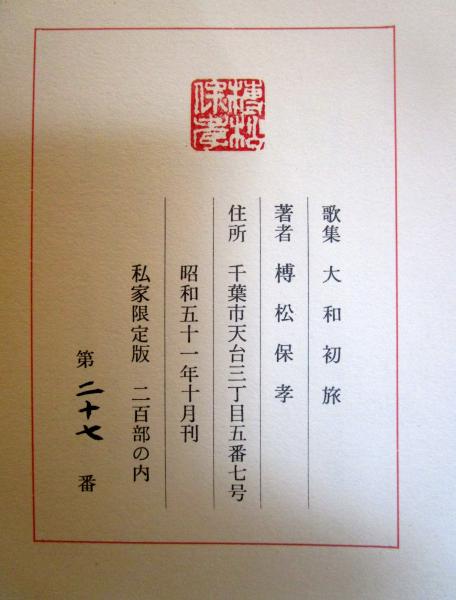 榑松
保孝
歌集 大和初旅
著者 榑松保孝
住所 千葉市天台三丁目五番七号
昭和五十一年十月刊
私家限定版 二百部の内
第二十七番